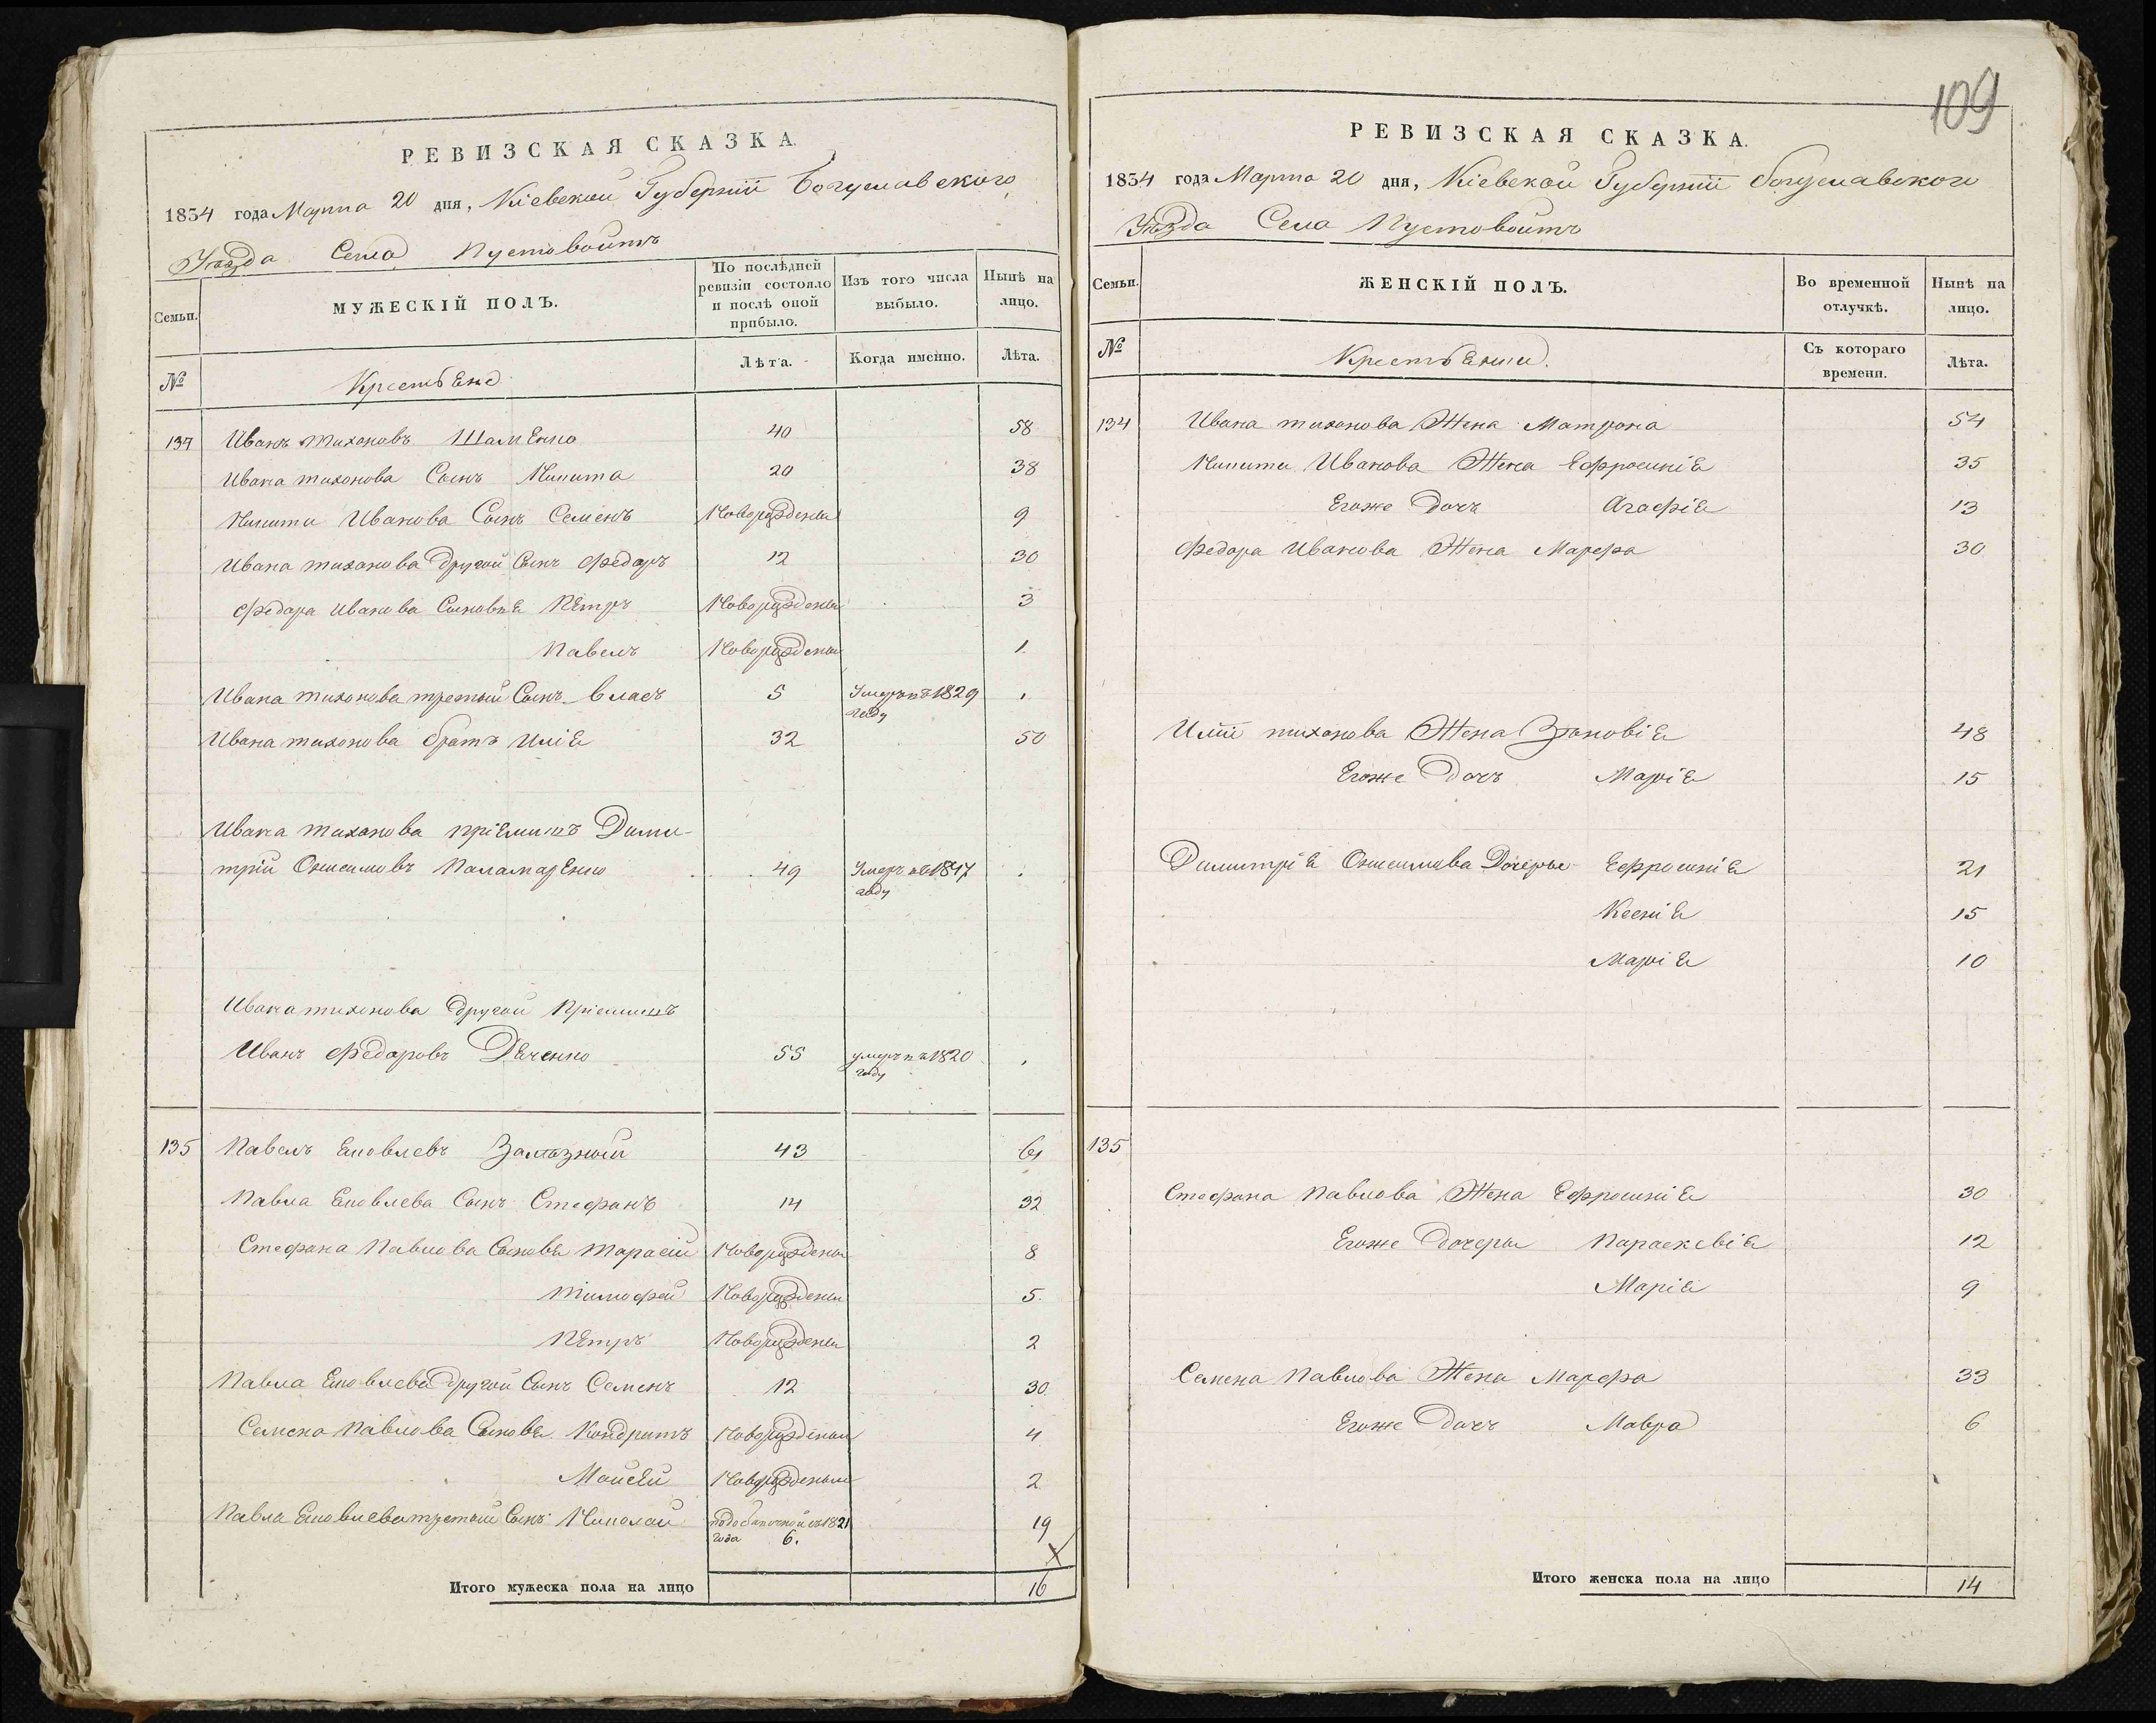 109
РЕВИЗСКАЯ СКАЗКА
1834 года Марта 20 дня, Кіевской Губерніи Богуславского
Уѣзда Села Пустовойтъ
Семьи.
МУЖЕСКІЙ ПОЛЪ.
По послѣдней ревизіи состояло и послѣ оной прибыло.
Изъ того числа выбыло.
Нынѣ на лицо.
№
Крестьяне
Лѣта.
Когда именно.
Лѣта.
134 Иванъ Тихоновъ 40 58
Ивана Тихонова Сынъ Никита 20 38
Никиты Иванова Сынъ Семенъ Новорожденны 9
Ивана Тихонова другой Сынъ Федоръ 12 30
Федора Иванова Сыновья Петръ Новорожденны 3
Павелъ Новорожденны 1
Ивана Тихонова третый Сынъ Власъ 5 Умеръ въ 1829 году
Ивана Тихонова братъ Илія 32 50
Ивана Тихонова пріемышъ Дими-
трій Онисимовъ Паламаренко 49 Умеръ въ 1817 году
Ивана Тихонова другой Пріемышъ
Иванъ Федоровъ Дяченко 55 умеръ въ 1820 году
135 Павелъ Яковлевъ 43 61
Павла Яковлева Сынъ Стефанъ 14 32
Стефана Павлова Сыновья Тарасій Новорожденны 8
Тимофей Новорожденны 5
Петръ Новорожденны 2
Павла Яковлева другой Сынъ Семенъ 12 30
Семена Павлова Сыновья Кондратъ Новорожденны 4
Моисей Новорожденны 2
Павла Яковлева третый Сынъ Николай 1821 года 6. 19
Итого мужеска пола на лицо 16
РЕВИЗСКАЯ СКАЗКА.
1834 года Марта 20 дня, Кіевской Губерніи богуславского
Уѣзда Села Пустовойтъ
Семьи.
ЖЕНСКІЙ ПОЛЪ.
Во временной отлучкѣ.
Нынѣ на лицо.
№
Крестьянки.
Съ котораго времени.
Лѣта.
134 Ивана Тихонова Жена Матрона 54
Никиты Иванова Жена Ефросинія 35
Егоже Дочъ Агафія 13
Федора Иванова Жена Марфа 30
Иліи Тихонова Жена Зѣновія 48
Егоже Дочъ Марія 15
Димитрія Онисимова Дочеры Ефросинія 21
Ксенія 15
Марія 10
135
Стефана Павлова Жена Ефросинія 30
Егоже Дочеры Параскевія 12
Марія 9
Семена Павлова Жена Марфа 33
Егоже Дочъ Мавра 6
Итого женска пола на лицо 14